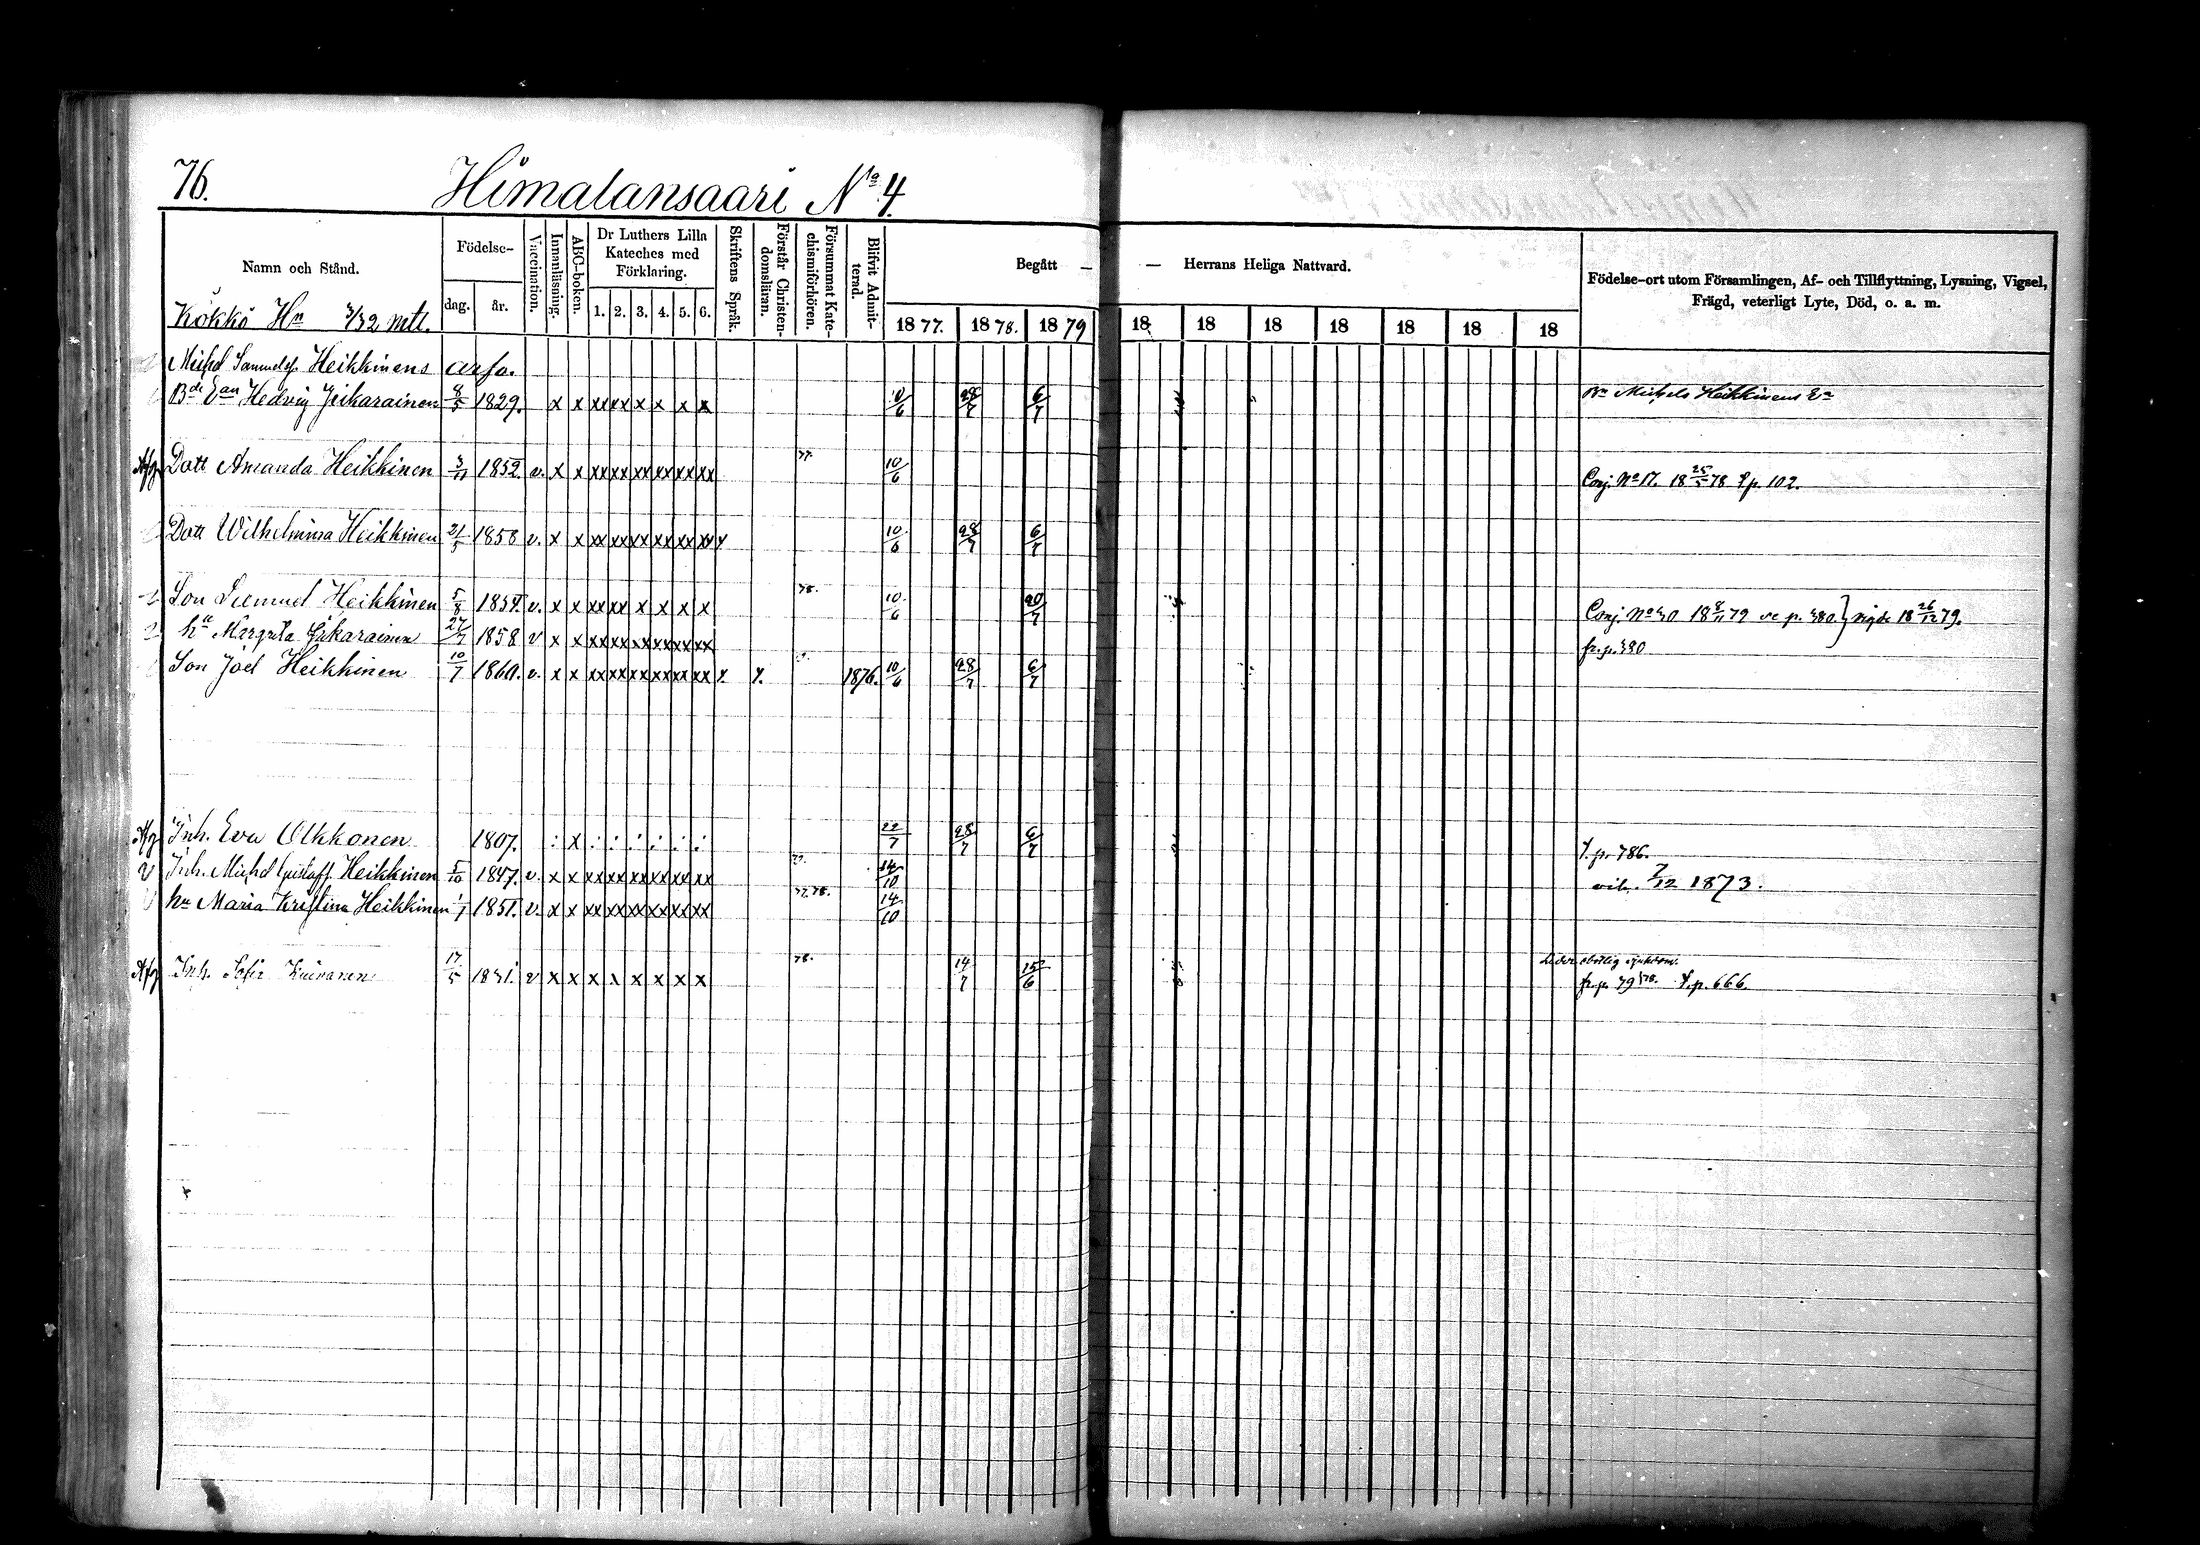 76.
Himalansaari No 4.
Namn och Stånd.
Födelse-
dag.
år.
Vaccination.
Innanläsning.
ABC-boken.
Dr Luthers Lilla
Kateches med
Förklaring.
1. 2. 3. 4. 5. 6.
Skriftens Språk.
Förstår Christen-
domsläran.
Försummat Kate-
chismiförhören.
Blifvit Admit-
terad.
Begått — — Herrans Heliga Nattvard.
1877. 1878. 1879 18 18 18 18 18 18 18
Födelse-ort utom Församlingen, Af- och Tillflyttning, Lysning, Vigsel,
Frägd, veterligt Lyte, Död, o. a. m.
Kökkö Hn 3/32 mtl.
Michel Samuelss. Heikkinens arfo.
Bde Ean Hedvig 8/5 1829. x x xx xx x x x x 10/6 28/7 6/7 Bn Michels Heikkinens Ea
Afg Dott Amanda Heikkinen 3/11 1852. v. x x xx xx xx xx xx xx 77. 10/6 Conj. No 17. 18 25/5 78 p. 102.
Dott Wilhelmina Heikkinen 21/5 1858 v. x x xx xx xx xx xx xx 10/6 28/7 6/7
Son Samuel Heikkinen 5/8 v. x x xx xx x x x x 78. 10/6 20/7 Conj. No 30 18 8/11 79 p. 380. } vigde 18 26/12 79.
hu Margreta 27/7 1858 v x x xx xx xx xx xx xx fr. p. 380
Son Joel Heikkinen 10/7 1860. v. x x xx xx xx xx xx xx 1876. 10/6 28/7 6/7
Afg Inh. Eva Olkkonen 1807. 22/7 28/7 6/7 p. 786.
V Inh. Michel Gustaff Heikkinen 5/10 1847. v. x x xx xx xx xx xx xx 14/10 7/12 1873.
V hu Maria Kristina Heikkinen 1/7 1851. v. x x xx xx xx xx xx xx 77. 78. 14/10
Afg Inh. Sofia 17/5 v x x x x x x x x 78. 14/7 15/6
fr. p. 79 p. 666.